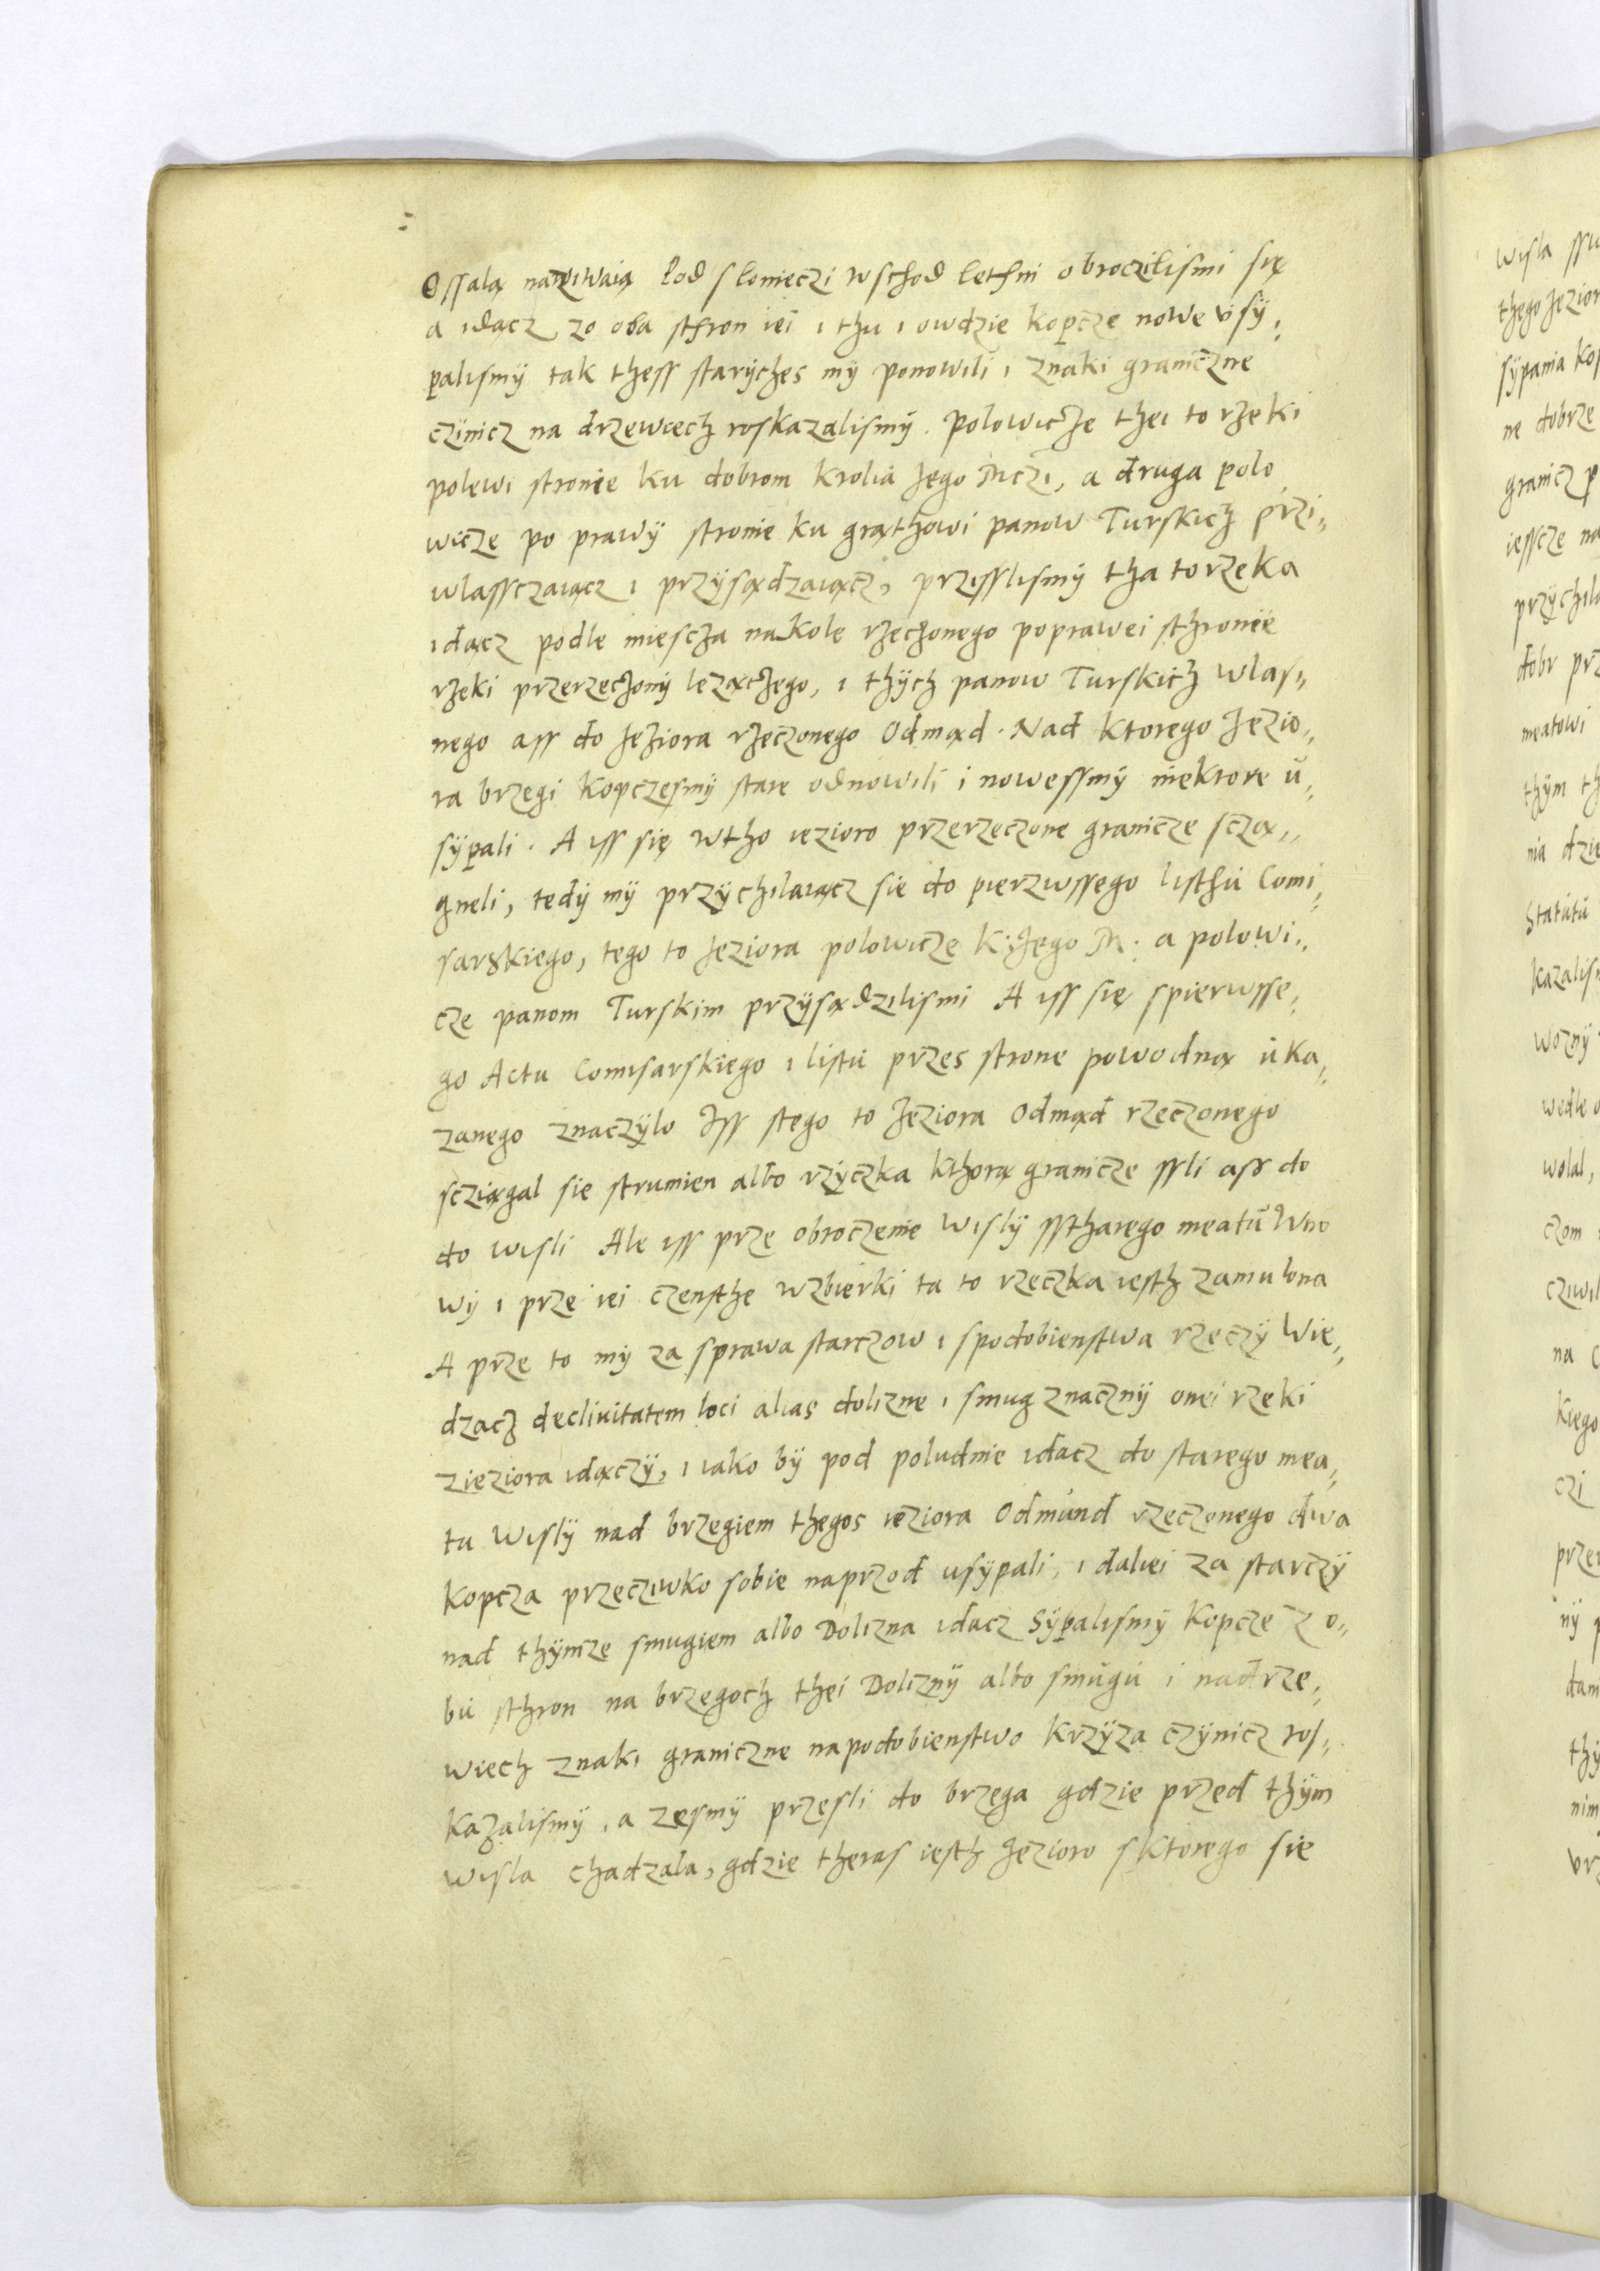 Ossalą nazÿwaią Pod slonieczi wschod lethni obroczilismi się
a idącz zo oba sthron iei i thu i owdzie kopcze nowe vsÿ,
palismÿ tak thess starÿchesmÿ ponowili i znaki graniczne
czinicz na drzewiech roskazalismÿ. polowicze thei to rzeki
polewi stronie ku dobrom krolia Jego Mczi, a druga polo
wicze po prawÿ stronie ku grąthowi panow Turskich przi„
wlassczaiącz i przÿsądzaiącz, przisslismÿ tha to rzeka
idącz podle miescza na Kole rzeczonego poprawei sthronie
rzeki przerzeczonÿ lezączego, i thÿch panow Turskich wlas„
nego ass do Jeziora rzeczonego Odmąd. Nad ktorego Jezio„
ra brzegi kopczesmÿ stare odnowili i nowessmÿ niektore u„
sÿpali. A iss się wtho iezioro przerzeczone granicze sczą„
gneli, tedÿ mÿ przÿchilaiącz sie do pierzwssego listhu Comi„
sarskiego, tego to Jeziora polowicze K. Jego M. a polowi„
cze panom Turskim przÿsądzilismi A iss się spierwsse„
go Actu Comisarskiego i listu przes strone powodną uka„
zanego znaczÿlo Jss stego to Jeziora Odmąd rzeczonego
scziągal sie strumien albo rzÿczka kthorą granicze ssli ass do
do wisli Ale iss prze obroczenie Wislÿ sstharego meatu Wno
wÿ i prze iei czensthe wzbierki ta to rzeczka iesth zamulona
A prze to mÿ za sprawa starczow i spodobienstwa rzeczÿ Wie„
dzacz declivitatem loci alias dolizne i smug znacznÿ onei rzeki
zieziora idączÿ, i iako bÿ pod poludnie idacz do starego mea„
tu Wislÿ nad brzegiem thegos ieziora Odmund rzeczonego dwa
kopcza przecziwko sobie naprzod usÿpali, i daliei za starczÿ
nad thÿmze smugiem albo Dolizna idacz Sÿpalismÿ kopcze z o„
bu sthron na brzegoch thei Doliznÿ albo smugu i nadrze„
wiech znaki graniczne napodobienstwo krzÿza czÿnicz ros„
kazalismÿ, a zesmÿ przesli do brzega gdzie przed thÿm
wisla chadzala, gdzie theras iesth Jezioro sktorego sie
thego Jezior
sÿpania kop
ne dobrze
granicz p
iesscze na
przÿchila
dobr prz
meatowi
thÿm th
nia dzie
Statutu
kazalism
woznÿ
wedle o
wolal,
czom
cziwil
na
kiego
czi
przer
nÿ p
dam
thÿ
nim